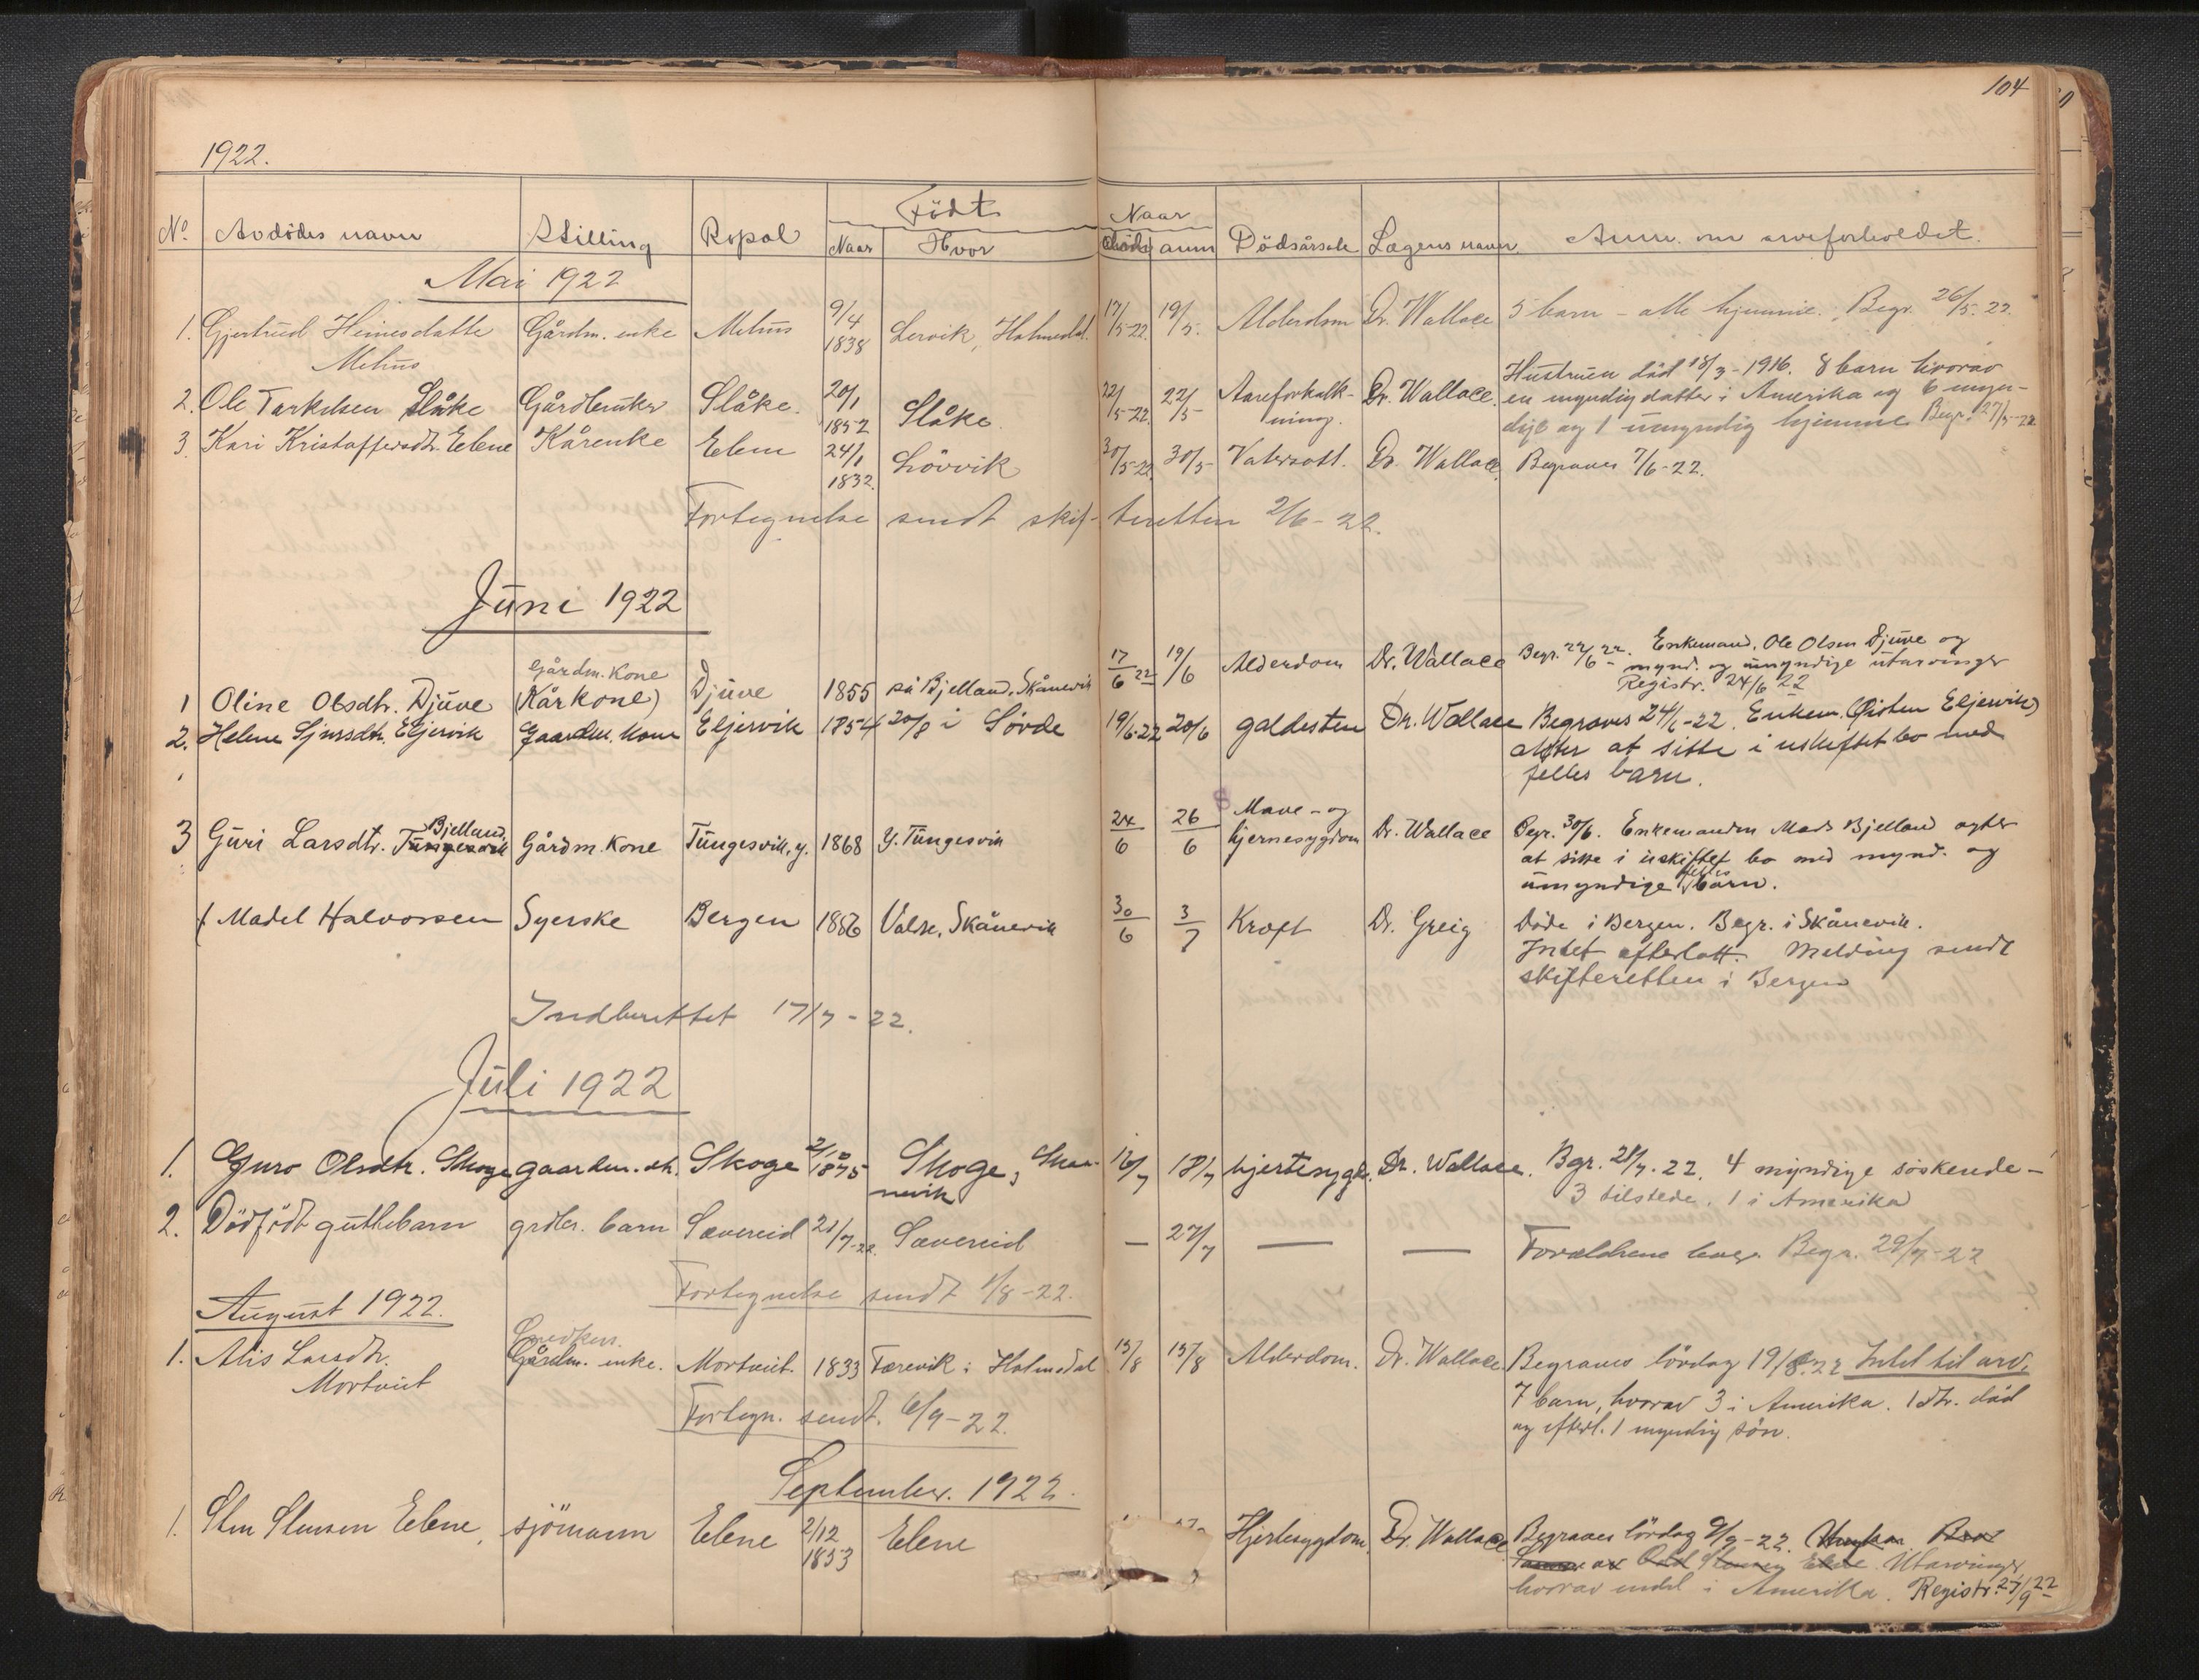 104
1922.
No. Avdødes navn Stilling Bopæl Født Naar Hvor Naar døde anm Dödsårsak Lægens navn Anm. om arveforholdet.
Mai 1922
1. Gjertrud Heinesdatte Gårdm. enke Mehus 9/4 Lervik, Holmedal. 17/5-22. 19/5. Alderdom Dr. Wallace 5 barn - alle hjemme. Begr. 26/5-22
Mehus 1838
Hustruen död 18/3-1916. 8 barn hvorav
2. Ole Tarkelsen Slåke Gårdbruker Slåke. 20/1 1852 Slåke. 22/5-22 22/5- Aareforkalk- Dr. Wallace. en myndig datter i Amerika og 6 myn-
ning. dige og 1 umyndig hjemme Begr. 27/5-22
3. Kari Kristoffersdtr. Ebne Kårenke Ebne 24/1 1832. Lövvik 30/5-22. 30/5- Vatersott. Dr. Wallace Begraves 7/6-22.
Fortegnelse sendt skif- teretten 2/6-22.
Juni 1922
Gårdm. Kone 17/6 22 19/6 Alderdom Dr. Wallace Begr. 22/6-22. Enkemand, Ole Olsen Djuve og
mynd. og umyndige utarvinger
1 Oline Olsdtr. Djuve (Kårkone) Djuve 1855 på Bjelland, Skånevik Registr. 24/6 22
2. Helene Sjursdtr. Eljervik Gaardm. kone Eljervik 1854 20/8 i Sövde 19/6-22 20/6 galdesten Dr. Wallace Begraves 24/6-22. Enkem. (Øisten Eljervik)
akter at sitte i uskiftet bo med
felles barn.
3 Guri Larsdtr. Tungesvik Bjelland. Gårdm. Kone Tungesvik, y. 1868 Y. Tungesvik 24/6 26/6 Mave- og Dr. Wallace Begr. 30/6. Enkemanden Mads Bjelland agter
hjernesygdom at sitte i uskiftet bo med mynd. og
umyndige felles barn.
Madel Halvorsen Syerske Bergen 1886 Valse, Skånevik 30/6 3/7 Kræft Dr. Greig Döde i Bergen. Begr. i Skånevik.
Intet efterlatt. Melding sendt
skifteretten i Bergen
Indberettet 17/7-22.
Juli 1922
1. Guro Olsdtr. Skoge gaardm. dt. Skoge 2/10 1875 Skoge, Skaa- 16/7 18/7 hjertesygd. Dr. Wallace. Bgr. 21/7.22. 4 myndige söskende-
nevik 3 tilstede, 1 i Amerika
2. Dödfödt guttebarn grdbr. barn Sævereid 21/7-22. Sævereid — 27/7 — — Forældrene lever. Begr. 29/7-22
Fortegnelse sendt 1/8-22.
August 1922.
1. Alis Larsdtr. Gårdm. enke. Mortveit. 1833 Færevik i Holmedal 15/8 15/8 Alderdom. Dr. Wallace. Begraves lördag 19/8.22 Intet til arv.
Mortveit 7 barn, hvorav 3 i Amerika. 1 dtr. död
Fortegn. sendt. 6/9-22. og efterl. 1 myndig sön.
September. 1922.
1. Sten Stensen Ebne, sjömann Ebne 2/12 1853 Ebne Hjertesygdom. Dr. Wallace Begraves lördag 9/9-22.
Utarvinger
hvorav endel i Amerika. Registr. 27/9 22